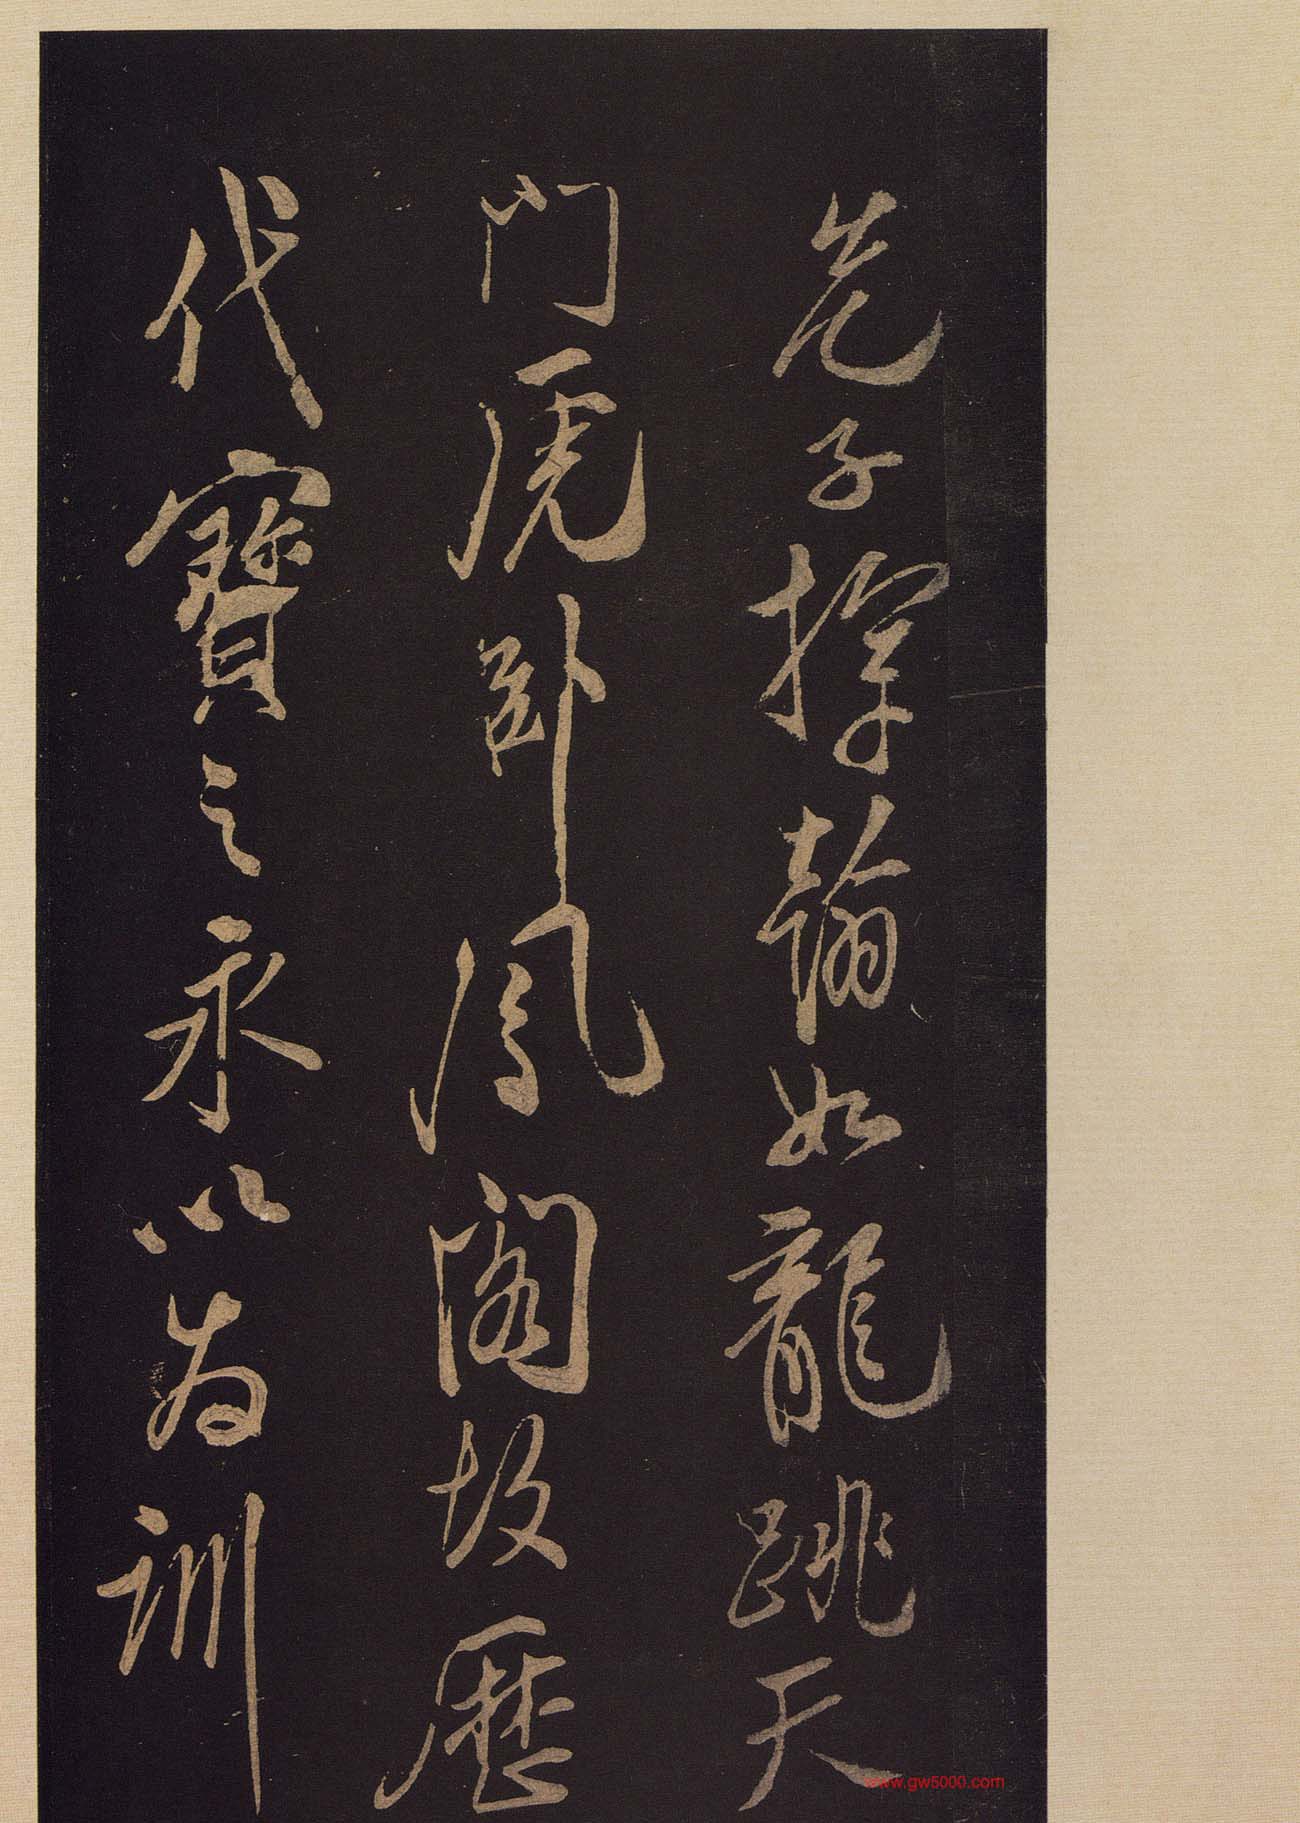 先子揮翰如龍跳天
門虎卧鳳閣故歷
代寶之永以為訓
www.gw5000.com